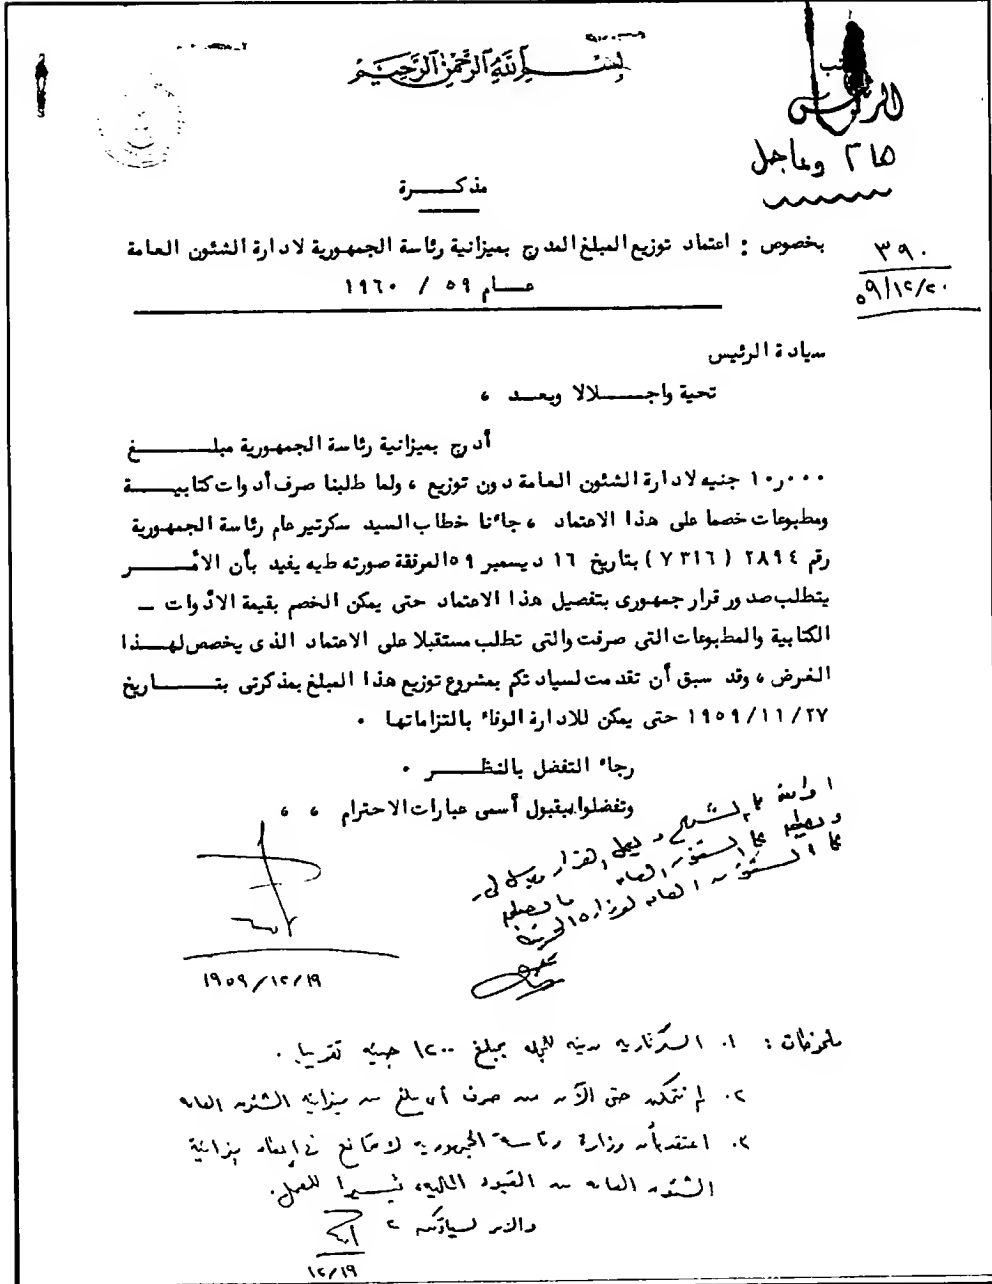 بسم الله الرحمن الرحيم
الرئيس
مذكـــــرة
بخصوص : اعتماد توزيع المبلغ المدرج بميزانية رئاسة الجمهورية لادارة الشئون العامة
عـــام ٥٩ / ١٩٦٠
٣٩٠
٥٩/١٢/٢٠
سيادة الرئيس
تحية واجـــــلالا وبعـــد ،
أدرج بميزانية رئاسة الجمهورية مبلـــــــغ
١٠ر٠٠٠ جنيه لادارة الشئون العامة دون توزيع ، ولما طلبنا صرف أدوات كتابيـــــة
ومطبوعات خصما على هذا الاعتماد ، جاءنا خطاب السيد سكرتير عام رئاسة الجمهورية
رقم ٢٨٩٤ ( ٧٣١٦ ) بتاريخ ١٦ ديسمبر ٥٩ المرفقة صورته طيه يفيد بأن الأمـــــر
يتطلب صدور قرار جمهورى بتفصيل هذا الاعتماد حتى يمكن الخصم بقيمة الأدوات ـ
الكتابية والمطبوعات التى صرفت والتى تطلب مستقبلا على الاعتماد الذى يخصص لهـــذا
الغرض ، وقد سبق أن تقدمت لسيادتكم بمشروع توزيع هذا المبلغ بمذكرتى بتـــــاريخ
١٩٥٩/١١/٢٧ حتى يمكن للادارة الوفاء بالتزاماتها ٠
رجاء التفضل بالنظـــــر ٠
وتفضلوا بقبول أسمى عبارات الاحترام ، ،
١٩٥٩/١٢/١٩
ملحوظات : ١. السكرتارية مدينة بمبلغ ١٢٠٠ جنيه تقريبا .
٢. لم نتمكن حتى الآن من صرف أى مبلغ من ميزانية الشئون العامة
٣. اعتقد أن وزارة رئاسة الجمهورية لا تمانع فى إعفاء ميزانية
الشئون العامة من القيود المالية، تيسيرا للعمل.
والأمر لسيادتكم ،
١٢/١٩